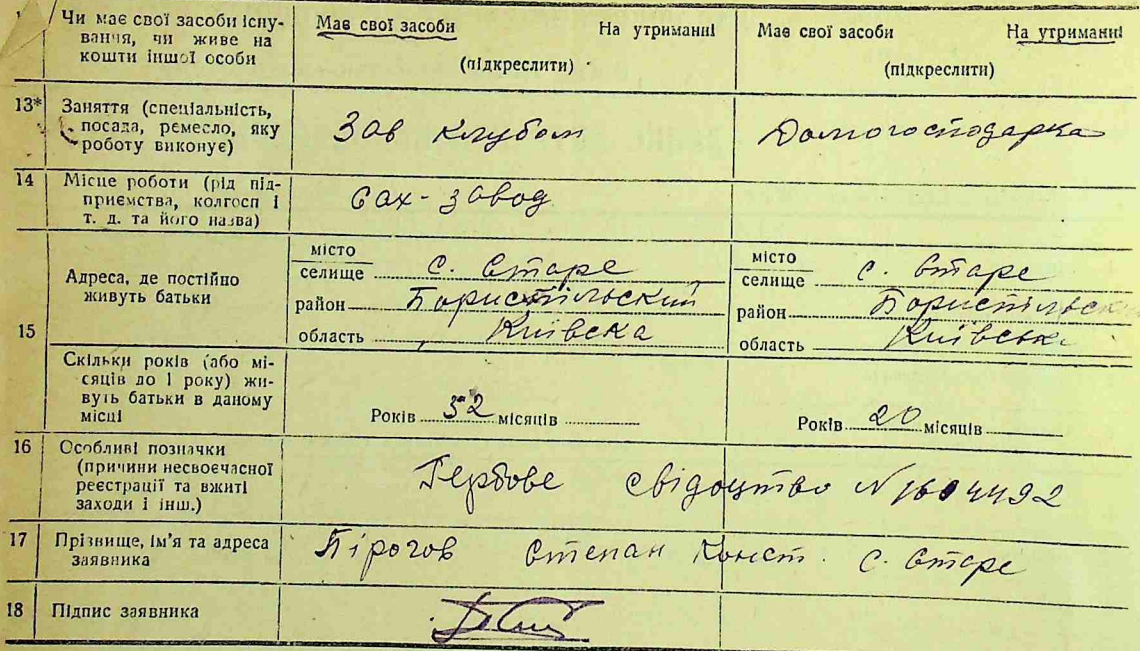 Чи має свої засоби існу-
вання, чи живе на
кошти іншої особи
Має свої засоби На утриманні
(підкреслити)
Має свої засоби На утриманні
(підкреслити)
13* Заняття (спеціальність,
посада, ремесло, яку
роботу виконує)
Зав клубом
Домогосподарка
14 Місце роботи (рід під-
приємства, колгосп і
т. д. та його назва)
Сах-завод
15 Адреса, де постійно
живуть батьки
місто
селище с. Старе
район Бориспільский
область Київска
місто
селище с. Старе
район Бориспільск
область Київська
Скільки років (або мі-
сяців до 1 року) жи-
вуть батьки в даному
місці
Років 32 місяців
Років 20 місяців
16 Особливі позначки
(причини несвоєчасної
реєстрації та вжиті
заходи і інш.)
Гербове свідоцтво N 1604492
17 Прізвище, ім'я та адреса
заявника
Пірогов Степан Конст. с. Старе
18 Підпис заявника